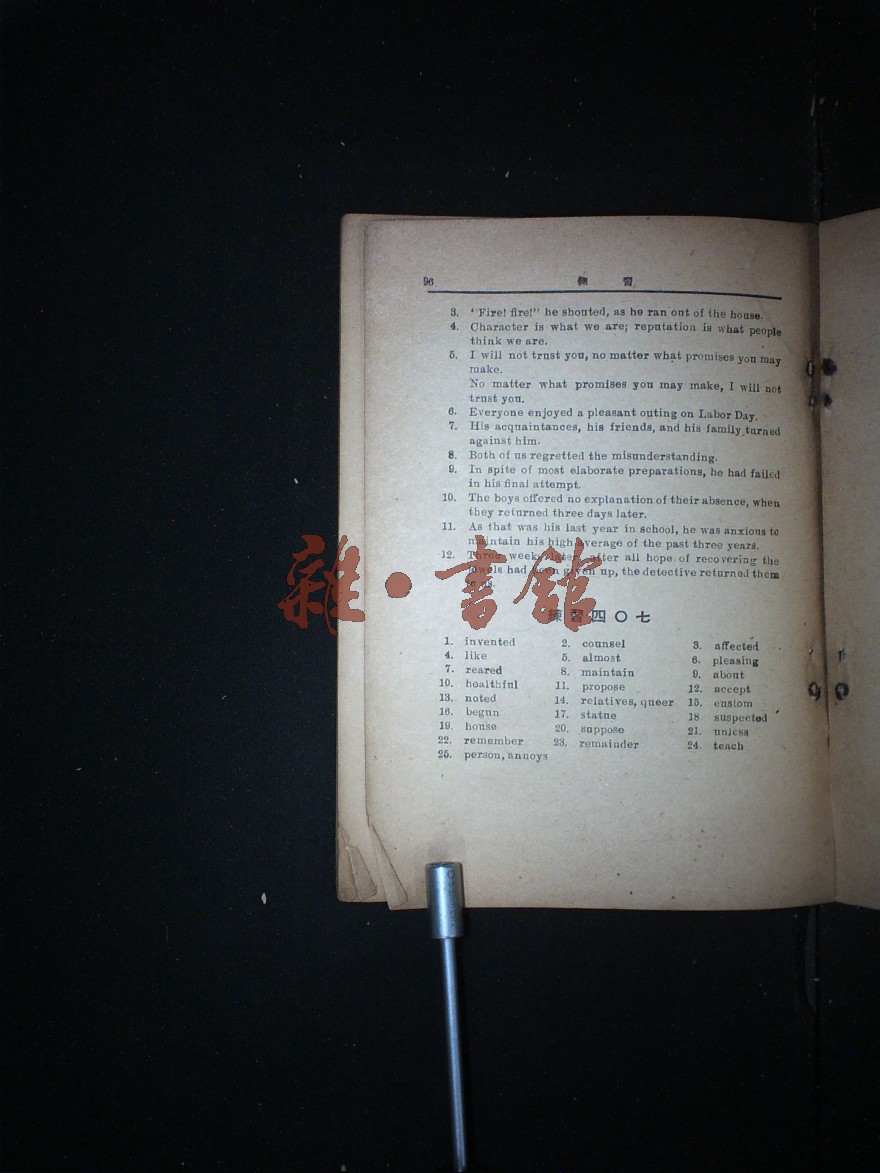 96 練習
3. "Fire! fire!" he shouted, as he ran out of the house.
4. Character is what we are; reputation is what people
think we are.
5. I will not trust you, no matter what promises you may
make.
No matter what promises you may make, I will not
trust you.
6. Everyone enjoyed a pleasant outing on Labor Day.
7. His acquaintances, his friends, and his family turned
against him.
8. Both of us regretted the misunderstanding.
9. In spite of most elaborate preparations, he had failed
in his final attempt.
10. The boys offered no explanation of their absence, when
they returned three days later.
11. As that was his last year in school, he was anxious to
maintain his high average of the past three years.
12. Three weeks later, after all hope of recovering the
jewels had been given up, the detective returned them
to us.
雜·書館
練習四〇七
1. invented 2. counsel 3. affected
4. like 5. almost 6. pleasing
7. reared 8. maintain 9. about
10. healthful 11. propose 12. accept
13. noted 14. relatives, queer 15. custom
16. begun 17. statue 18. suspected
19. house 20. suppose 21. unless
22. remember 23. remainder 24. teach
25. person, annoys